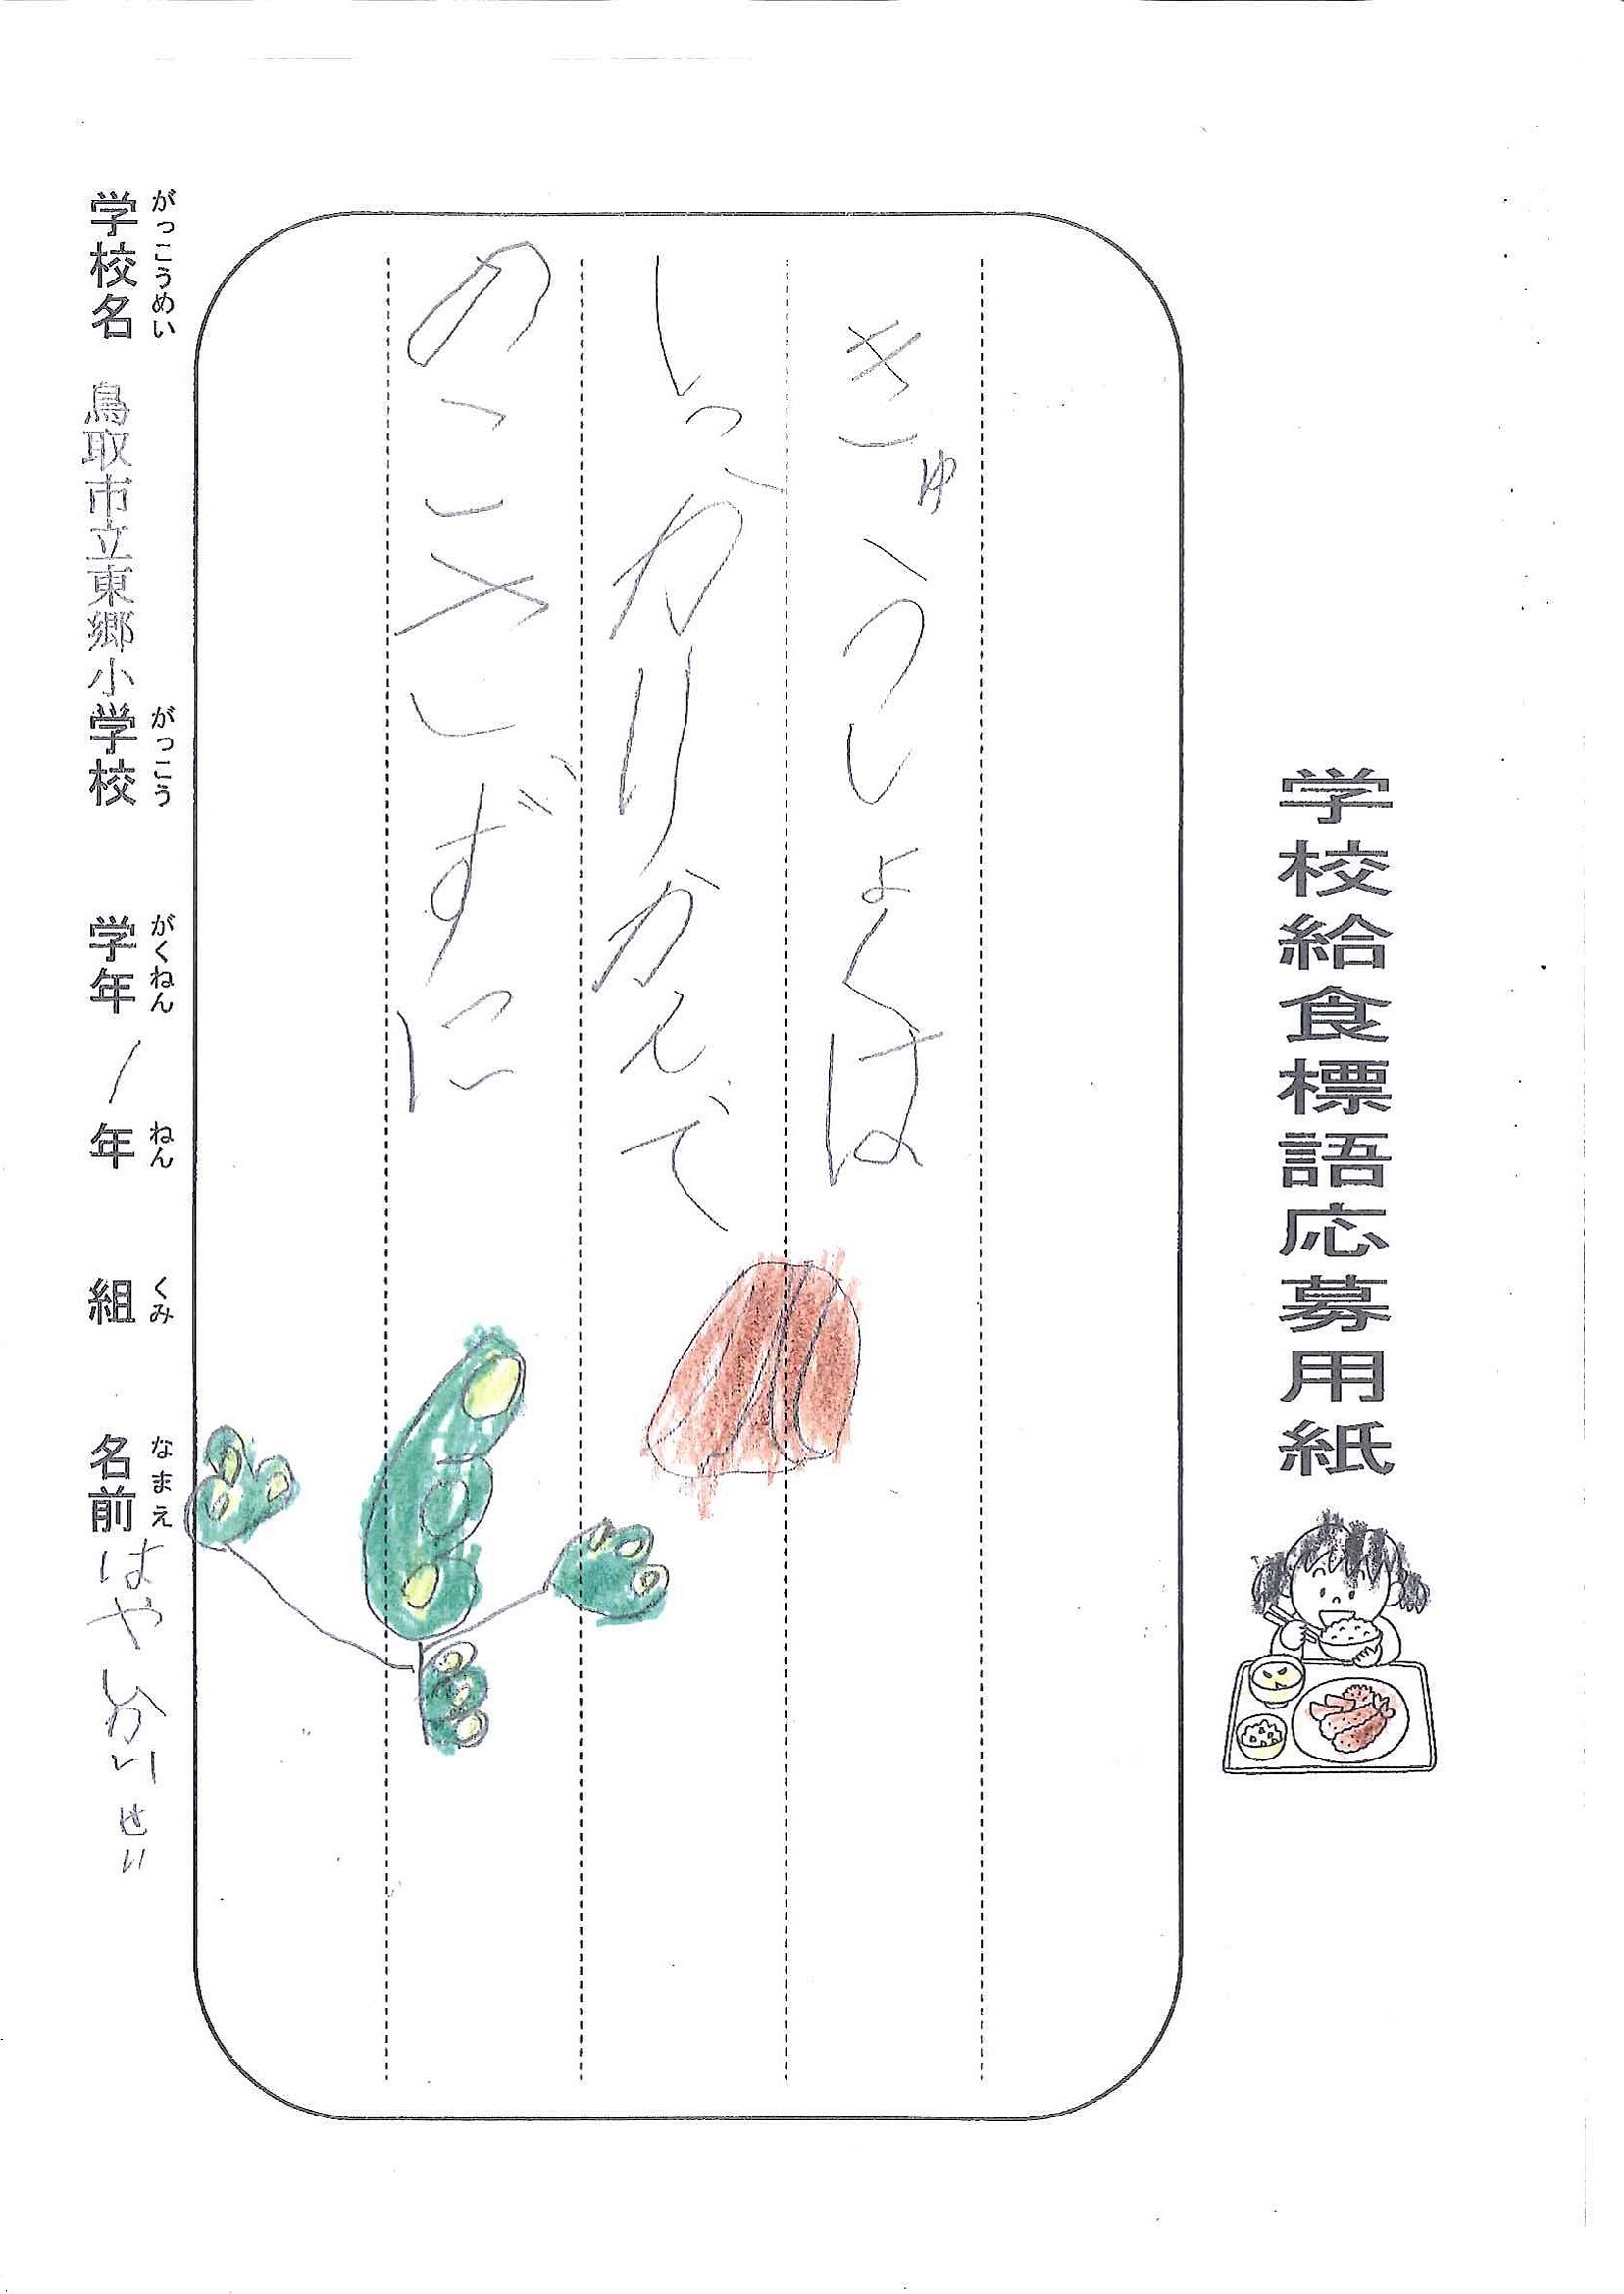 学校給食標語応募用紙
きゅうしょくは
しっかりかんで
のこさずに
がっこうめい がっこう がくねん ねん くみ なまえ
学校名 鳥取市立東郷小学校 学年 1年 組 名前 はやしかいせい